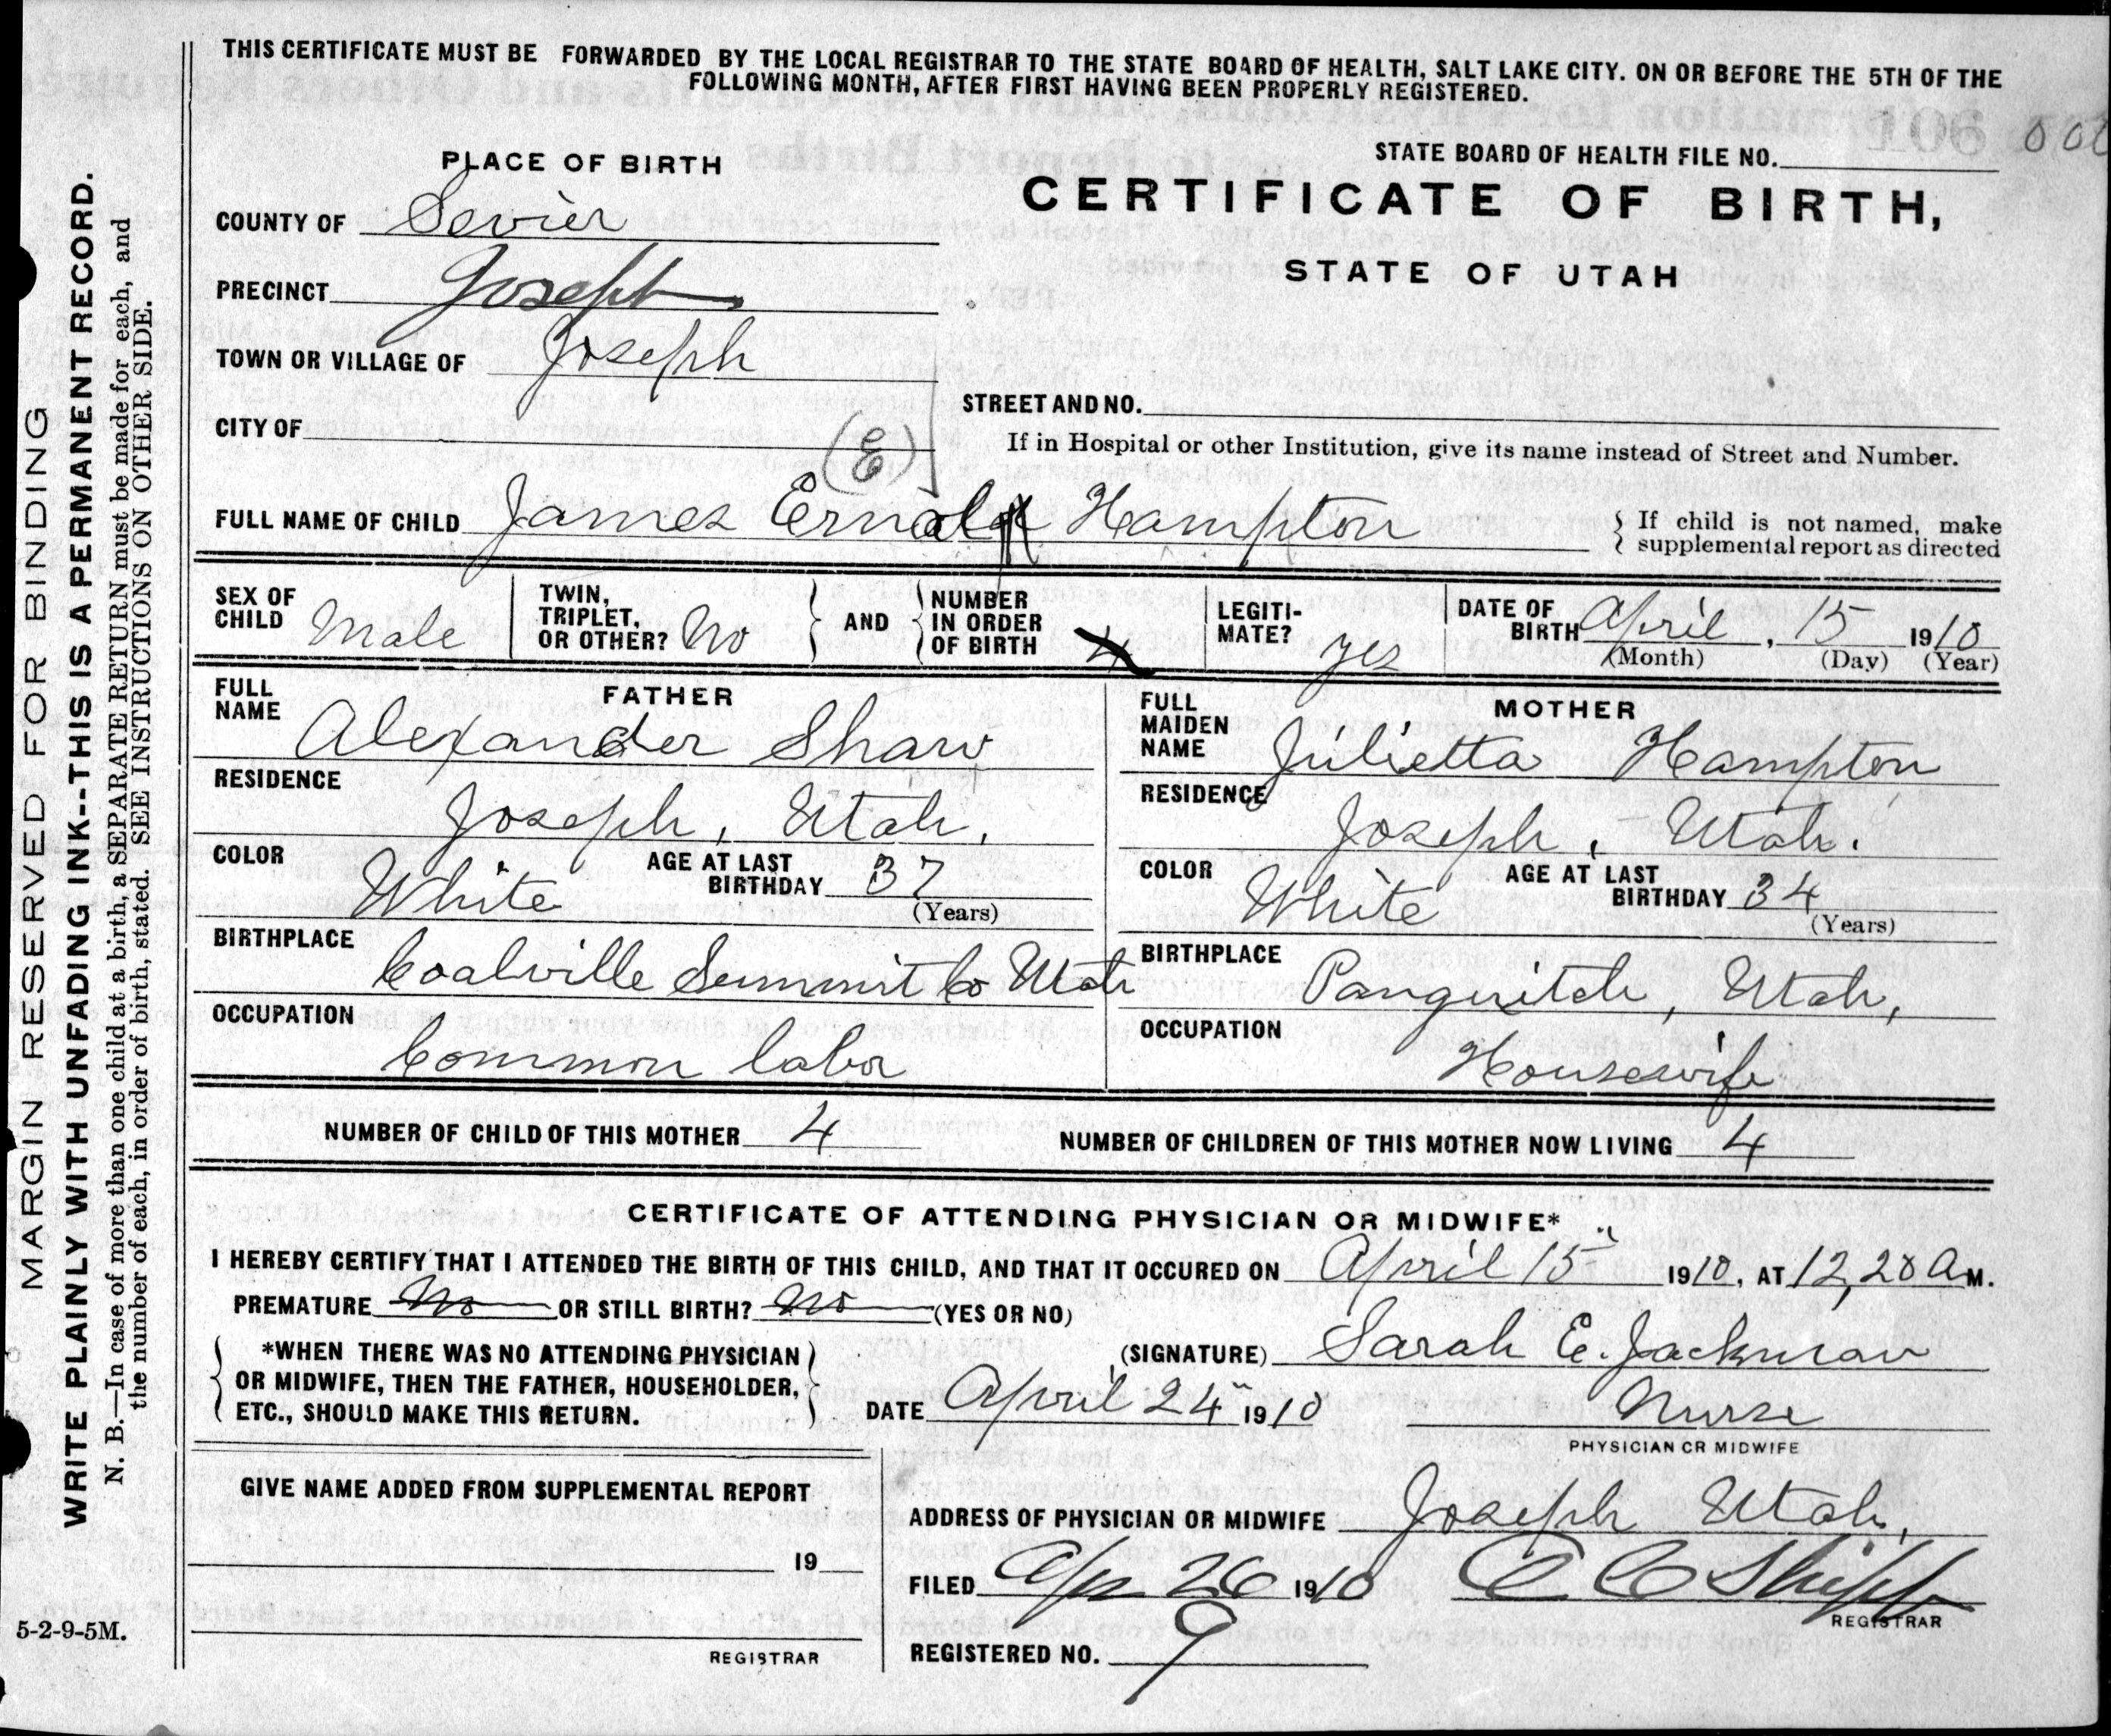 THIS CERTIFICATE MUST BE FORWARDED BY THE LOCAL REGISTRAR TO THE STATE BOARD OF HEALTH, SALT LAKE CITY. ON OR BEFORE THE 5TH OF THE
FOLLOWING MONTH, AFTER FIRST HAVING BEEN PROPERLY REGISTERED.
MARGIN RESERVED FOR BINDING
WRITE PLAINLY WITH UNFADING INK--THIS IS A PERMANENT RECORD.
N. B.—In case of more than one child at a birth, a SEPARATE RETURN must be made for each, and
the number of each, in order of birth, stated. SEE INSTRUCTIONS ON OTHER SIDE.
STATE BOARD OF HEALTH FILE NO.
PLACE OF BIRTH
CERTIFICATE OF BIRTH,
STATE OF UTAH
COUNTY OF Sevier
PRECINCT Joseph
TOWN OR VILLAGE OF Joseph
STREET AND NO.
CITY OF
(E)
If in Hospital or other Institution, give its name instead of Street and Number.
FULL NAME OF CHILD James Hampton
If child is not named, make
supplemental report as directed
SEX OF CHILD Male
TWIN, TRIPLET, OR OTHER? No
AND
NUMBER IN ORDER OF BIRTH 4
LEGITI-MATE? yes
DATE OF BIRTH April, 15 1910
(Month) (Day) (Year)
FATHER
FULL NAME Alexander Shaw
RESIDENCE Joseph, Utah.
COLOR White AGE AT LAST BIRTHDAY 37
(Years)
BIRTHPLACE Coalville Summit Co Utah
OCCUPATION Common labor
MOTHER
FULL MAIDEN NAME Julietta Hampton
RESIDENCE Joseph, Utah.
COLOR White AGE AT LAST BIRTHDAY 34
(Years)
BIRTHPLACE Panguitch, Utah,
OCCUPATION Housewife
NUMBER OF CHILD OF THIS MOTHER 4 NUMBER OF CHILDREN OF THIS MOTHER NOW LIVING 4
CERTIFICATE OF ATTENDING PHYSICIAN OR MIDWIFE*
I HEREBY CERTIFY THAT I ATTENDED THE BIRTH OF THIS CHILD, AND THAT IT OCCURED ON April 15 1910, AT 12,20 A M.
PREMATURE No OR STILL BIRTH? No (YES OR NO)
*WHEN THERE WAS NO ATTENDING PHYSICIAN
OR MIDWIFE, THEN THE FATHER, HOUSEHOLDER,
ETC., SHOULD MAKE THIS RETURN.
(SIGNATURE) Sarah E. Jackman
DATE April 24 1910 Nurse
PHYSICIAN OR MIDWIFE
GIVE NAME ADDED FROM SUPPLEMENTAL REPORT
19
REGISTRAR
ADDRESS OF PHYSICIAN OR MIDWIFE Joseph Utah,
FILED Apr 26 1910 Shipp
REGISTRAR
REGISTERED NO. 9
5-2-9-5M.